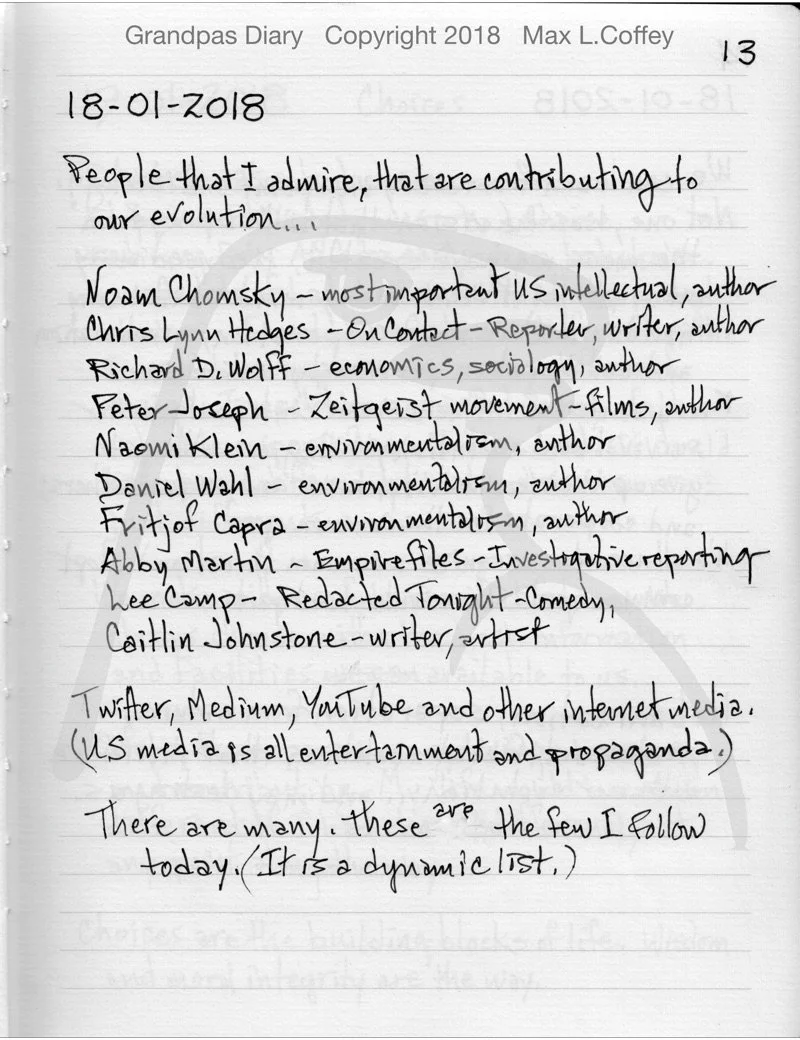 Grandpas Diary Copyright 2018 Max L.Coffey
13
18-01-2018
People that I admire, that are contributing to
our evolution...
Noam Chomsky – most important US intellectual, author
Chris Lynn Hedges – On Contact – Reporter, writer, author
Richard D. Wolff – economics, sociology, author
Peter Joseph – Zeitgeist movement – films, author
Naomi Klein – environmentalism, author
Daniel Wahl – environmentalism, author
Fritjof Capra – environmentalism, author
Abby Martin ~ Empire files – Investigative reporting
Lee Camp – Redacted Tonight – Comedy,
Caitlin Johnstone – writer, artist
Twitter, Medium, YouTube and other internet media.
(US media is all entertainment and propaganda.)
There are many. These are the few I follow
today. (It is a dynamic list.)
Choices are the building blocks of life. Wisdom
and moral integrity are the way.